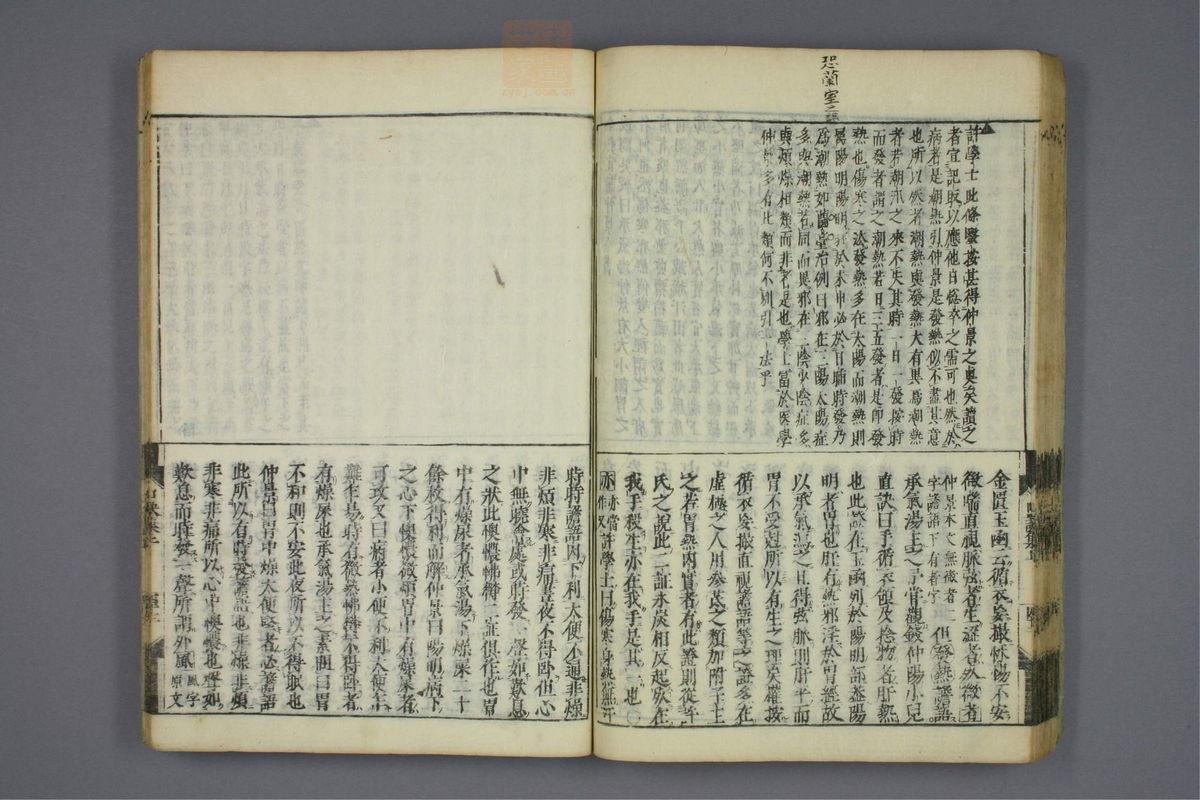 恐蘭室之誤
許學士此條醫按甚得仲景之奧矣讀之
者宜記取以應他日倥卒之需可也然於
病者是潮熱引仲景是發熱似不盡其意
也所以然者潮熱與發熱大有異焉潮熱
者若潮汛之來不失其時一日一發按時
而發者謂之潮熱若日三五發者是即發
熱也傷寒之法發熱多在太陽而潮熱則
屬陽明陽明旺於未申必於日晡時發乃
為潮熱如蘭室治例曰邪在三陽太陽症
多與潮熱若同而異邪在三陰少陰症多
與煩燥相類而非者是也學士富於医學
仲景多有此類何不別引一法乎
金匱玉函云循衣妄撮怵惕不安
微喘直視脈弦者生澀者死微者
仲景本文無微者
字譫語下有者字
但發熱譫語
承氣湯主之予嘗觀錢仲陽小兒
直訣曰手循衣領及捻物者肝熱
也此證在玉函列於陽明部蓋陽
明者胃也肝有熱邪淫於胃經故
以承氣瀉之且得弦脈則肝平而
胃不受剋所以有生之理矣羅按
循衣妄撮直視譫語等之證多在
虛極之人用參芪之類加附子主
之若胃熱內實者有此證則從許
氏之說此二証氷炭相反起死在
我手殺生亦在我手是其一也〇
亦
亦當
作又
許學士曰傷寒身熱無汗
時時譫語因下利大便不通非燥
非煩非寒非痛晝夜不得卧但心
中無曉會處或時發一聲如歎息
之狀此懊憹怫鬱二証俱作也胃
中有燥屎者承氣湯下燥屎二十
餘枚得利而解仲景曰陽明病下
之心下懊憹微煩胃中有燥屎者
可攻又曰病者小便不利大便乍
難乍易時有微熱怫鬱不得卧者
有燥屎也承氣湯主之素問曰胃
不和則不安此夜所以不得眠也
仲景曰胃中燥大便堅者必譫語
此所以有時發譫語也非燥非煩
非寒非痛所以心中懊憹也聲如
歎息而時發一聲所謂外風
風字
原文